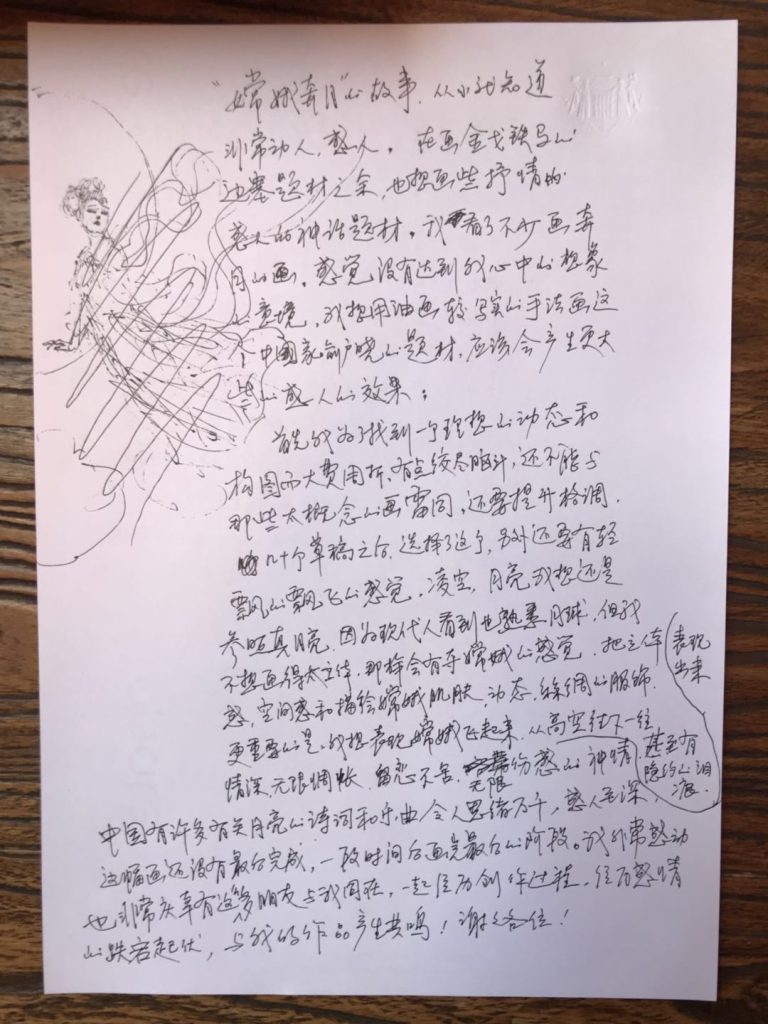 “嫦娥奔月”的故事，从小就知道
非常动人，感人。在画金戈铁马的
边塞题材之余，也想画些抒情的
感人的神话题材。我看了不少画奔
月的画，感觉没有达到我心中的想象
的意境，我想用油画较写实的手法画这
个中國家喻户晓的题材，应该会产生更大
些的感人的效果：
首先我为了找到一个理想的动态和
构图而大费周折，有点绞尽脑汁，还不能与
那些太概念的画雷同，还要提升格调。
几十个草稿之后，选择了这个，另外还要有轻
飘的飘飞的感觉，凌空，月亮我想还是
参照真月亮，因为现代人看到也熟悉月球，但我
不想画得太立体，那样会有夺嫦娥的感觉，把立体
感，空间感和描绘嫦娥肌肤，动态，丝绸的服饰，
表现
出来
更重要的是，我想表现嫦娥飞起来，从高空往下一往
情深，无限惆怅，留恋不舍，无限伤感的神情，
甚至有
隐约的泪
痕。
中国有许多有关月亮的诗词和乐曲令人思绪万千，感人至深，
这幅画还没有最后完成，一段时间后画完最后的阶段。我非常感动
也非常庆幸有这多朋友与我同在，一起经历创作过程，经历感情
的跌宕起伏，与我的作品产生共鸣！谢谢各位！